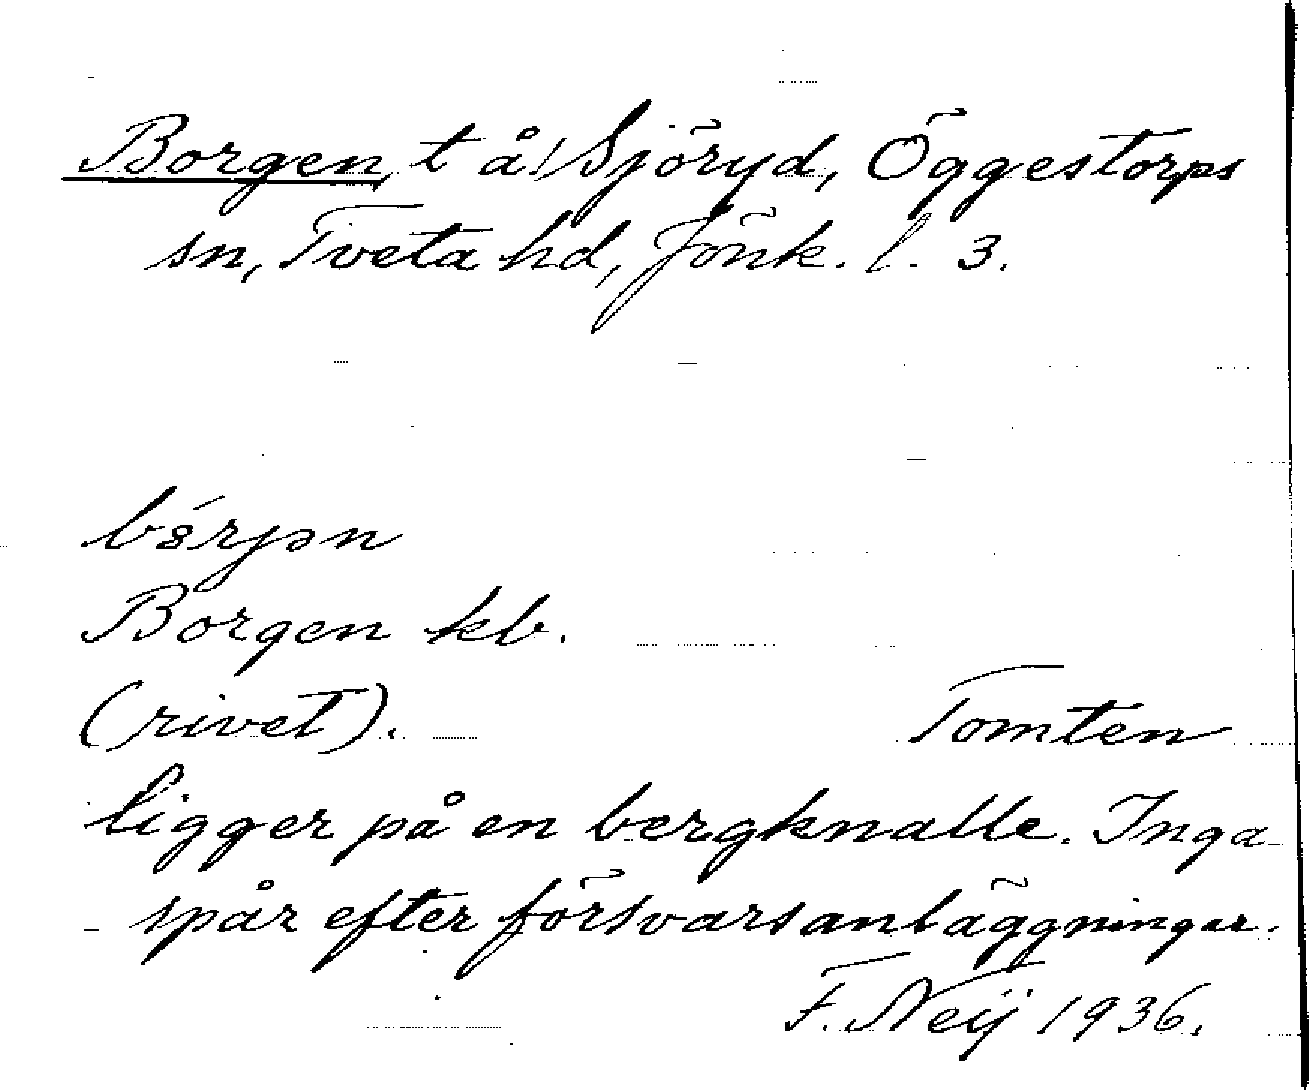 Borgen, t å Sjöryd, Öggestorps
sn, Tveta hd, Jönk. l. 3.
Borgen kb.
(rivet). Tomten
ligger på en bergknalle. Inga
spår efter försvarsanläggningar.
F. Neij 1936.